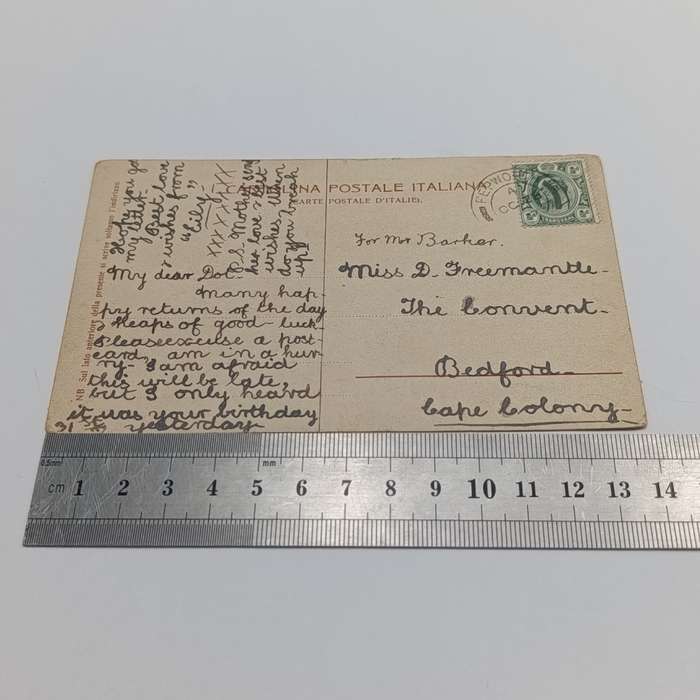 CARTOLINA POSTALE ITALIANA
(CARTE POSTALE D'ITALIE).
NB. Sul lato anteriore della presente si scrive soltanto l'indirizzo
For Mr Barker.
Miss D. Freemantle.
The Convent.
Bedford
Cape Colony
My dear Dot.
Many hap-
py returns of the day
& heaps of good luck.
Please excuse a post-
card, am in a hur-
ry. I am afraid
this will be late,
but I only heard
it was your birthday
yesterday
Hope you got
my letter.
Best love
& wishes from
"Lily"
XXXXXXX
P.S. Mother send
her love & best
wishes. When
do you break
up?
0,5mm
mm
cm 1 2 3 4 5 6 7 8 9 10 11 12 13 14